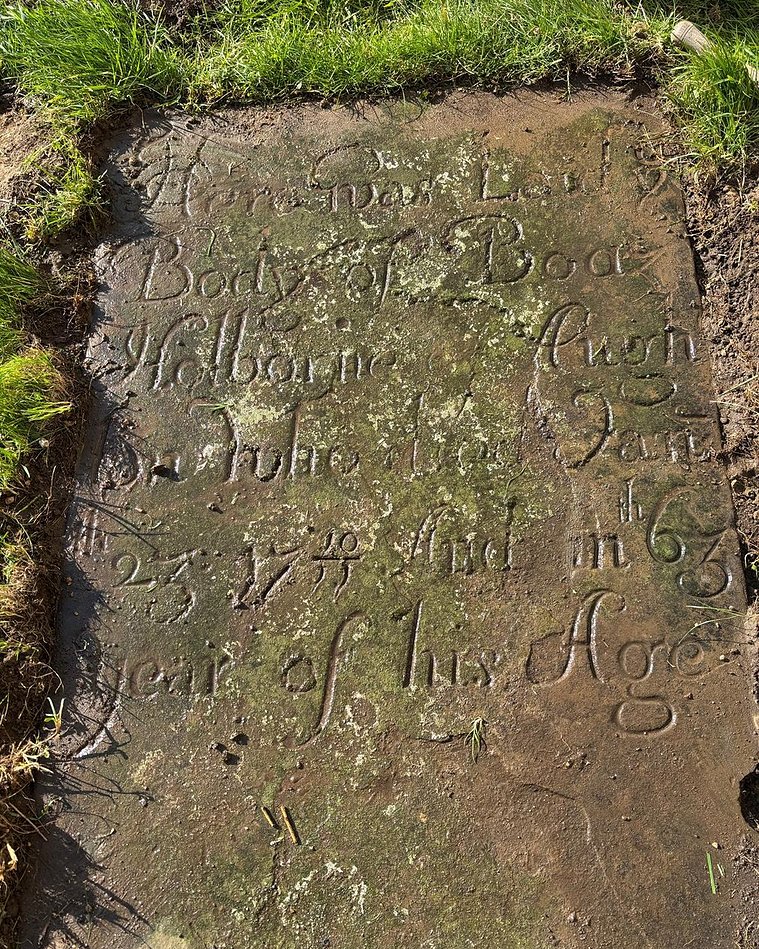 Here was Laid yᵉ
Body of Boaz
Holborne Hugh
son Who died Janʳʸ
ᵗʰ 23 17 10/11 And in ᵗʰ 63
year of his Age